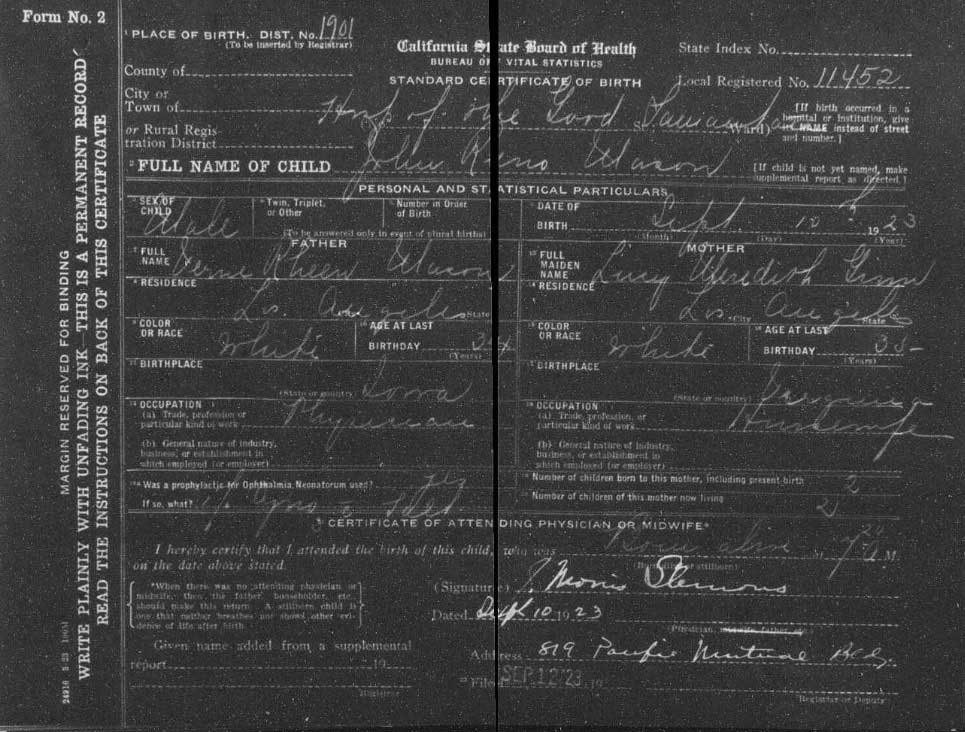 Form No. 2
MARGIN RESERVED FOR BINDING
WRITE PLAINLY WITH UNFADING INK—THIS IS A PERMANENT RECORD
READ THE INSTRUCTIONS ON BACK OF THIS CERTIFICATE
1 PLACE OF BIRTH. DIST. No. 1901
(To be inserted by Registrar)
California State Board of Health
BUREAU OF VITAL STATISTICS
STANDARD CERTIFICATE OF BIRTH
State Index No.
Local Registered No. 11452
County of
City or
Town of
Hosp of the Good Samaritan
St. Ward)
[If birth occurred in a
hospital or institution, give
its NAME instead of street
and number.]
or Rural Regis-
tration District
2 FULL NAME OF CHILD John Mason
[If child is not yet named, make
supplemental report as directed.]
PERSONAL AND STATISTICAL PARTICULARS
SEX OF
CHILD Male
Twin, Triplet,
or Other
Number in Order
of Birth
(To be answered only in event of plural births)
DATE OF
BIRTH Sept. 10 1923
(Month) (Day) (Year)
FATHER
FULL
NAME Verne Rheem Mason
RESIDENCE
Los Angeles State
COLOR
OR RACE White
AGE AT LAST
BIRTHDAY 34
(Years)
BIRTHPLACE
(State or country) Iowa
OCCUPATION
(a) Trade, profession or
particular kind of work Physician
(b) General nature of industry,
business, or establishment in
which employed (or employer)
MOTHER
FULL
MAIDEN
NAME Lucy Meredith Ginn
RESIDENCE
Los Angeles
City State
COLOR
OR RACE White
AGE AT LAST
BIRTHDAY 35
(Years)
BIRTHPLACE
(State or country) Virginia
OCCUPATION
(a) Trade, profession, or
particular kind of work Housewife
(b) General nature of industry,
business, or establishment in
which employed (or employer)
Was a prophylactic for Ophthalmia Neonatorum used? yes
If so, what?
Number of children born to this mother, including present birth 2
Number of children of this mother now living 2
CERTIFICATE OF ATTENDING PHYSICIAN OR MIDWIFE*
I hereby certify that I attended the birth of this child, who was Born alive at M.
on the date above stated.
(Born alive or stillborn)
*When there was no attending physician or
midwife, then the father, householder, etc.,
should make this return. A stillborn child is
one that neither breathes nor shows other evi-
dence of life after birth.
(Signature) J Morris Slemons
Dated Sept 10 1923
Physician, midwife, father,
Given name added from a supplemental
report 19
Registrar
Address 819 Pacific Mutual Bldg.
Filed SEP 12 '23 , 19
Registrar or Deputy